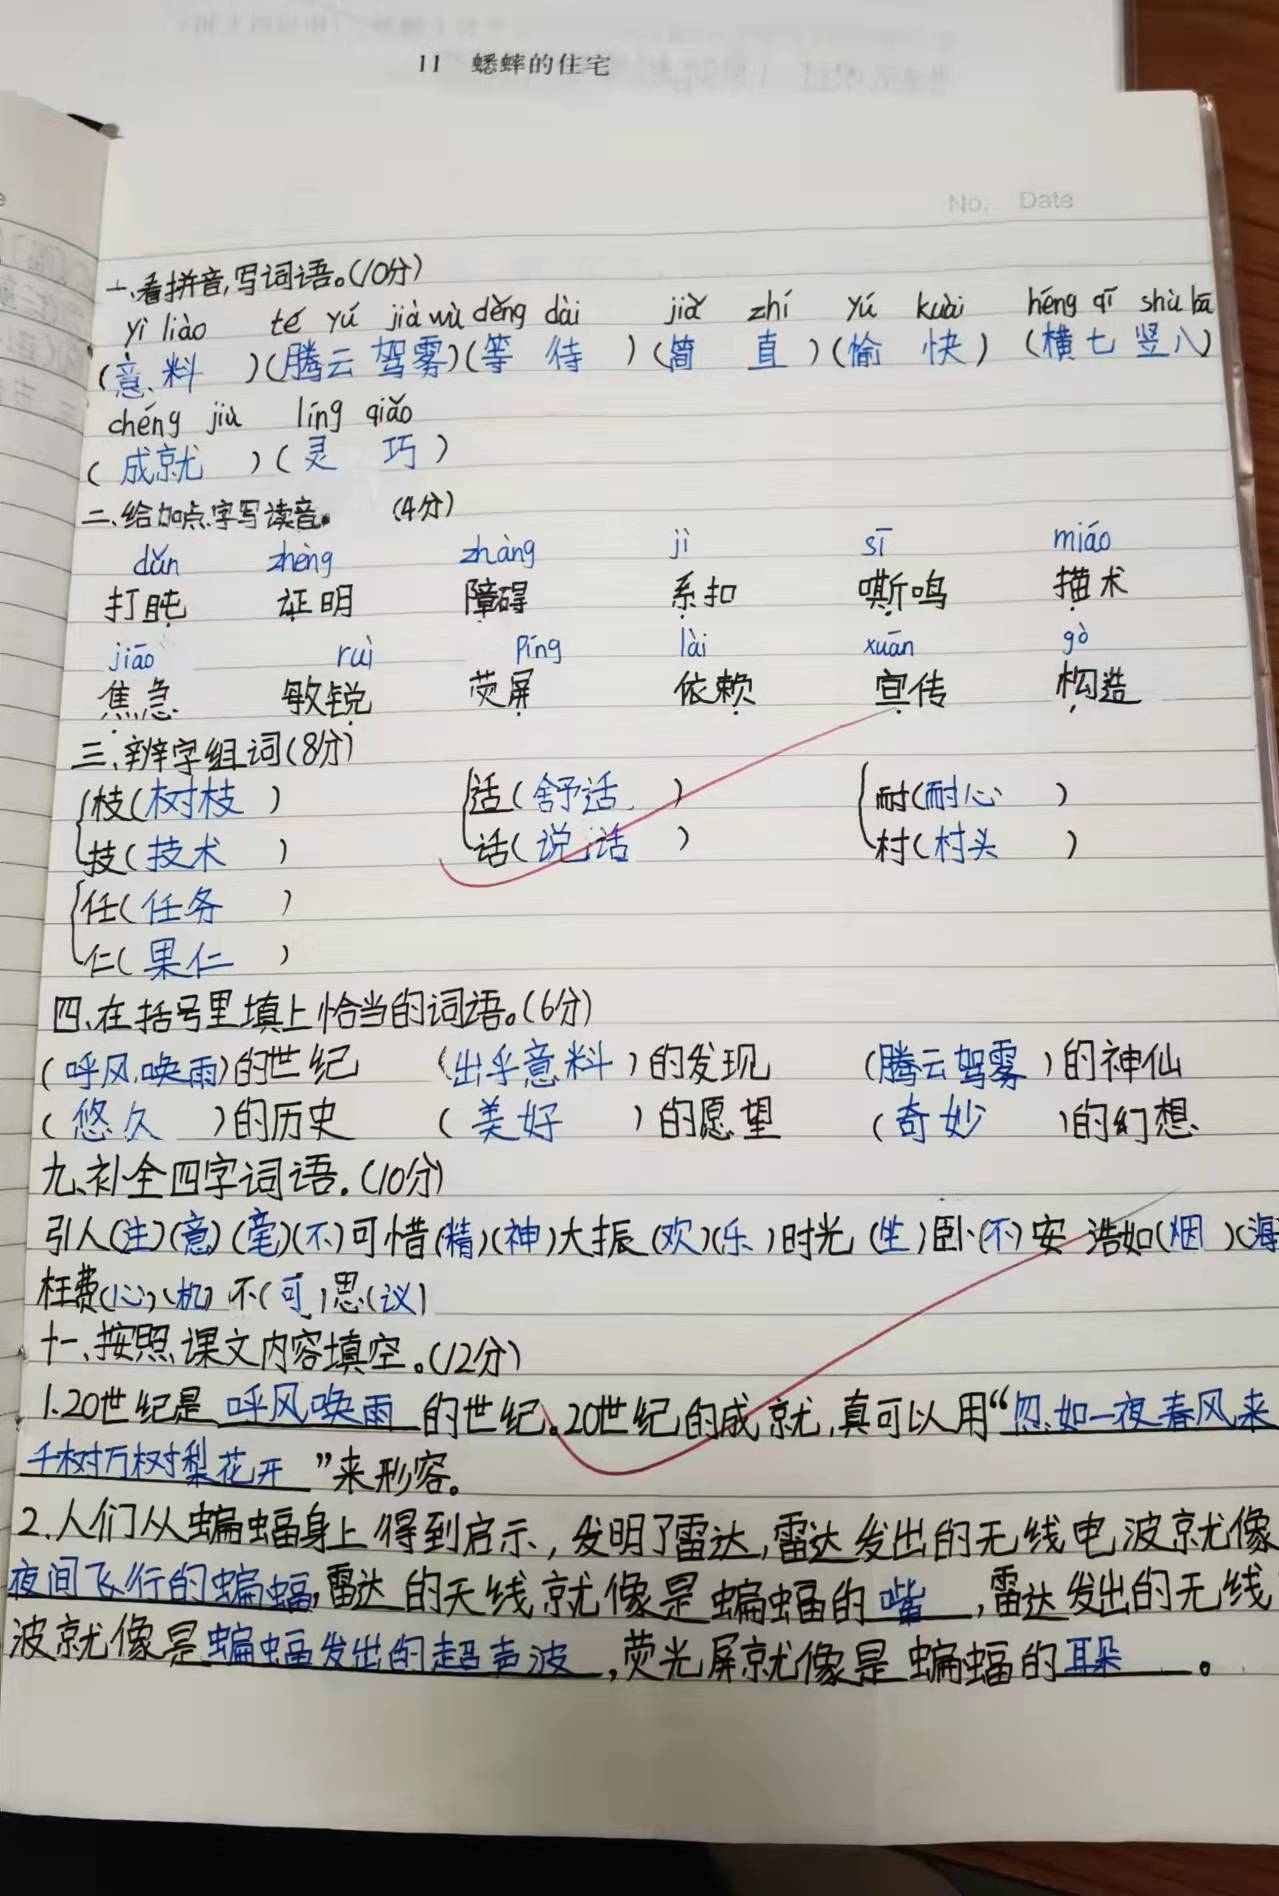 11 蟋蟀的住宅
No. Date
一、看拼音,写词语。(10分)
yì liào té yú jià wù děng dài jiǎ zhí yú kuài héng qī shù bā
(意料)(腾云驾雾)(等待)(简直)(愉快)(横七竖八)
chéng jiù líng qiǎo
(成就)(灵巧)
二、给加点字写读音。(4分)
dǔn zhèng zhàng jì sī miáo
打盹 证明 障碍 系扣 嘶鸣 描术
jiāo ruì píng lài xuān gò
焦急 敏锐 荧屏 依赖 宣传 构造
三、辨字组词(8分)
枝(树枝) 适(舒适) 耐(耐心)
技(技术) 话(说话) 村(村头)
任(任务)
仁(果仁)
四、在括号里填上恰当的词语。(6分)
(呼风唤雨)的世纪 (出乎意料)的发现 (腾云驾雾)的神仙
(悠久)的历史 (美好)的愿望 (奇妙)的幻想
九、补全四字词语。(10分)
引人(注)(意)(毫)(不)可惜(精)(神)大振(欢)(乐)时光(坐)卧(不)安 浩如(烟)(海
枉费(心)(机)不(可)思(议)
十一、按照课文内容填空。(12分)
1.20世纪是呼风唤雨的世纪。20世纪的成就,真可以用“忽如一夜春风来
千树万树梨花开”来形容。
2.人们从蝙蝠身上得到启示,发明了雷达,雷达发出的无线电波就像
夜间飞行的蝙蝠,雷达的天线就像是蝙蝠的嘴,雷达发出的无线
波就像是蝙蝠发出的超声波,荧光屏就像是蝙蝠的耳朵。